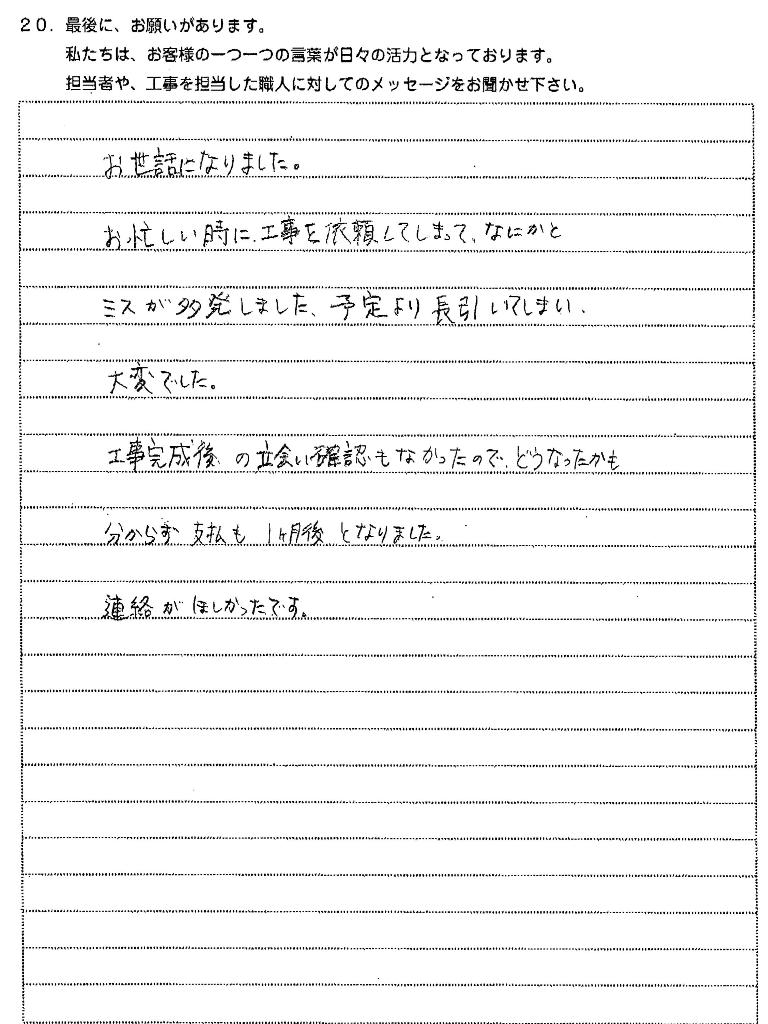 20. 最後に、お願いがあります。
私たちは、お客様の一つ一つの言葉が日々の活力となっております。
担当者や、工事を担当した職人に対してのメッセージをお聞かせ下さい。
お世話になりました。
お忙しい時に、工事を依頼してしまって、なにかと
ミスが多発しました、予定より長引いてしまい、
大変でした。
工事完成後、の立会い確認もなかったので、どうなったかも
分からず 支払も 1ヶ月後 となりました。
連絡が ほしかったです。